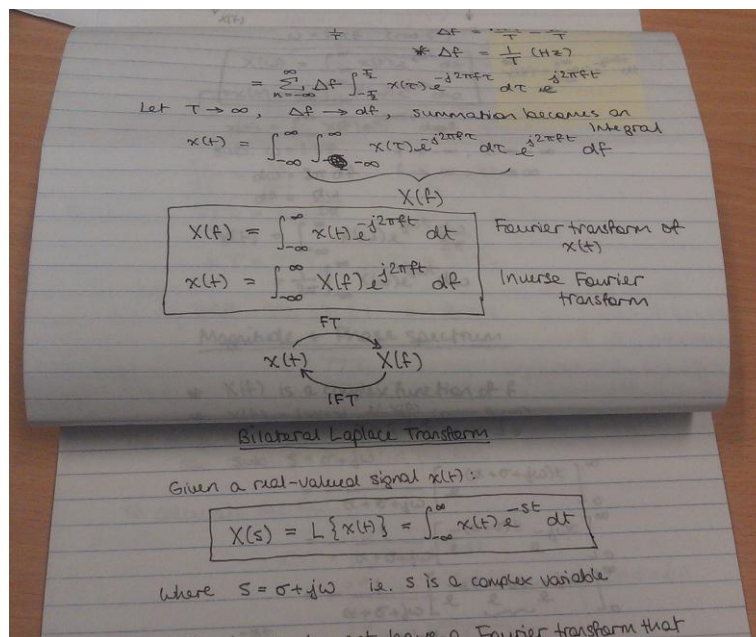 * Δf = 1/T (Hz)
= ∑_{n=-∞}^{∞} Δf ∫_{-T/2}^{T/2} x(τ) e^{-j2πfτ} dτ e^{j2πft}
Let T → ∞, Δf → df, summation becomes an
Integral
x(t) = ∫_{-∞}^{∞} ∫_{-∞}^{∞} x(τ) e^{-j2πfτ} dτ e^{j2πft} df
X(f)
X(f) = ∫_{-∞}^{∞} x(t) e^{-j2πft} dt Fourier transform of
x(t)
x(t) = ∫_{-∞}^{∞} X(f) e^{j2πft} df Inverse Fourier
transform
FT
x(t) X(f)
IFT
Bilateral Laplace Transform
Given a real-valued signal x(t):
X(s) = L{x(t)} = ∫_{-∞}^{∞} x(t) e^{-st} dt
where s = σ + jω i.e. s is a complex variable
have a Fourier transform that